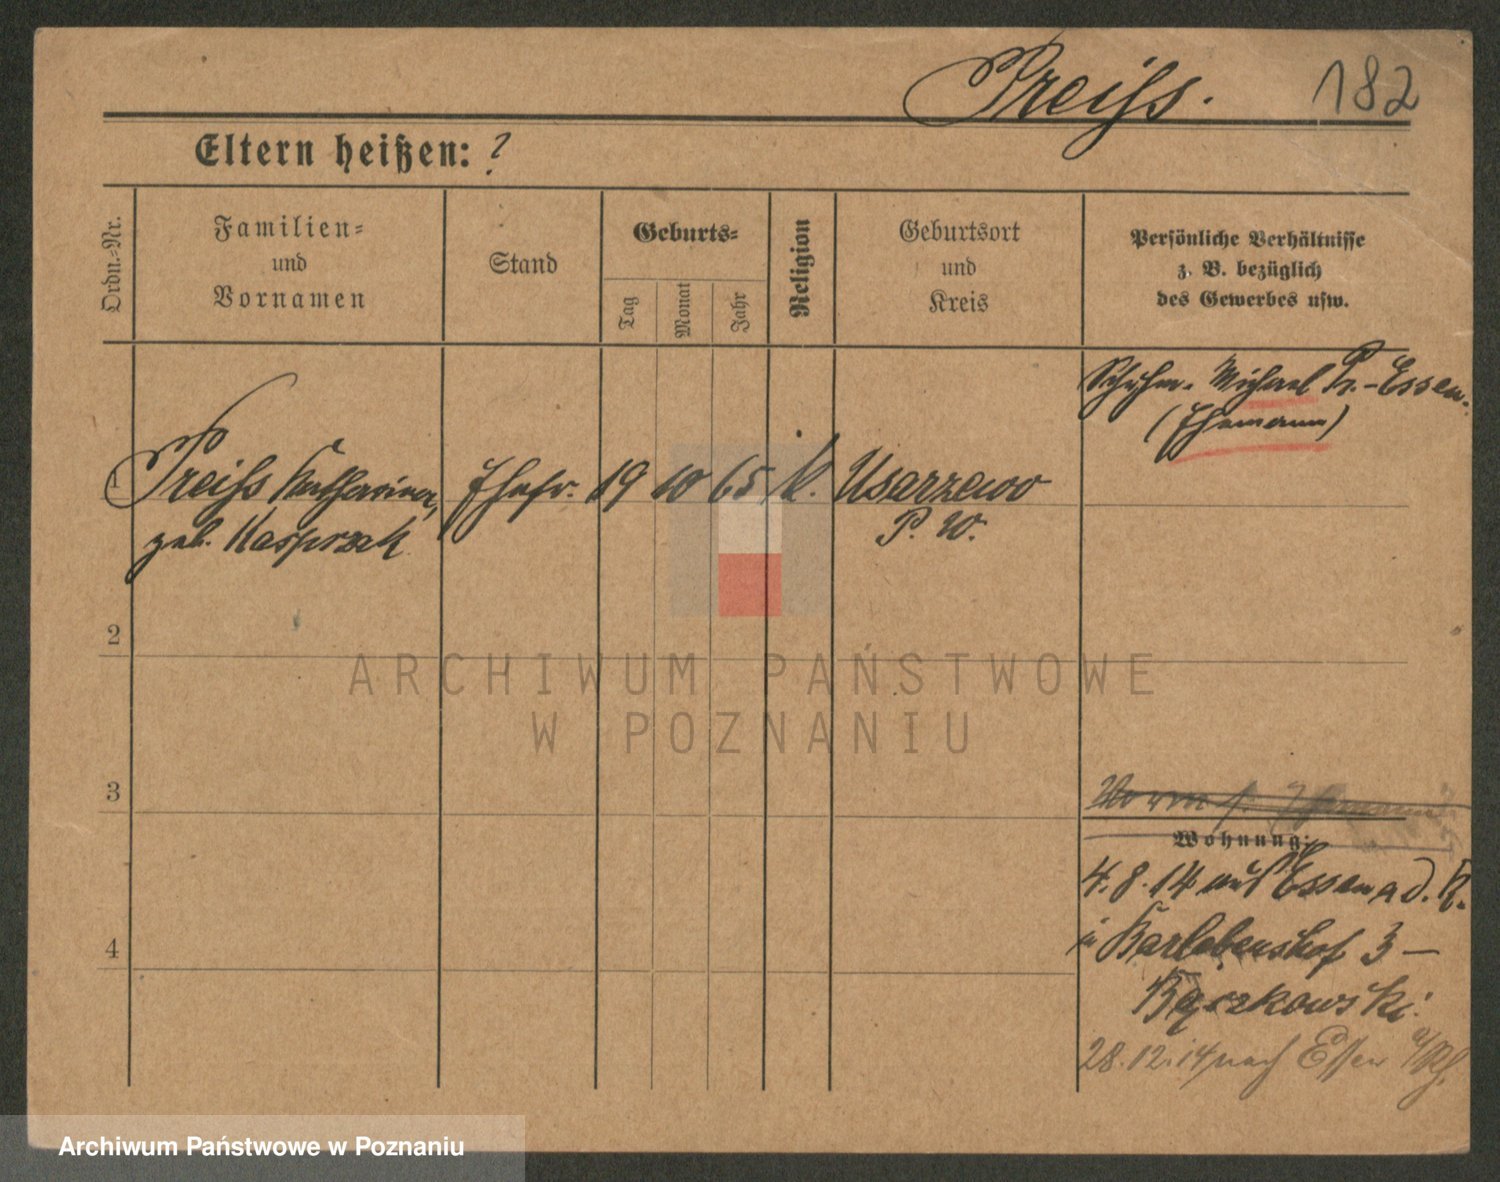 Preiss.
182
Eltern heißen: ?
Ordn.-Nr.
Familien-
und
Vornamen
Stand
Geburts-
Tag
Monat
Jahr
Religion
Geburtsort
und
Kreis
Persönliche Verhältnisse
z. B. bezüglich
des Gewerbes usw.
Schuhm. Michael Pr.-Essen.
(Ehemann)
1 Preiss Katharina, Ehefr. 19 10 65 k. Usarzewo
geb. Kasprzak P. W.
2
3
4
Wohnung:
4.8.14 aus Essen a. d. R.
in Karlebenshof 3 –
28.12.14 nach Essen a/Rh.
ARCHIWUM PAŃSTWOWE
W POZNANIU
Archiwum Państwowe w Poznaniu